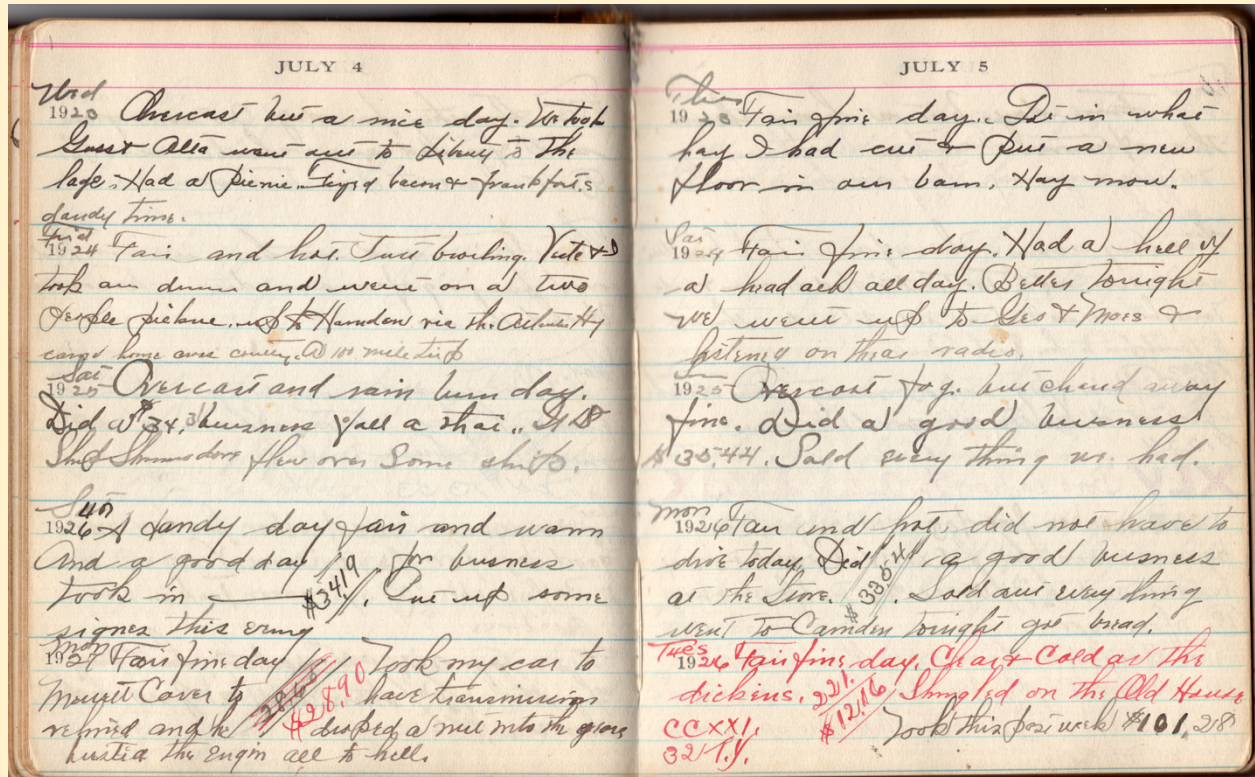 JULY 4
Wed
1923 Overcast but a nice day. We took
Guss & Alta went out to Liberty to the
Had a picnic. Fryed bacon & frankforts
dandy time.
Frid
1924 Fair and hot. Just broiling. &
took our dinner and went on a two
people picknic. up to Hamden via the Hy
came home over country. A 100 mile trip
Sat
1925 Overcast and rain bum day.
Did a $34.31 busness
Ship flew over Some ship.
Sun
1926 A dandy day fair and warm
And a good day for busness
took in $34.19. Put up some
signes this evning
Mon
1927 Fair fine day Took my car to
to $28.90 have transmission
and he droped a nut into the gears
busted the Engin all to hell.
JULY 5
Thurs
1923 Fair fine day. Got in what
hay I had cut & Put a new
floor in our barn. Hay mow.
Sat
1924 Fair fine day. Had a hell of
a headack all day. Better tonight
we went up to Geo & &
listened on thear radio.
Sun
1925 Overcast fog. but away
fine. Did a good busness
$35.44. Sold every thing we had.
Mon
1926 Fair and hot, did not have to
today. Did $38.54 a good busness
at the Store. Sold out every thing
went to Camden tonight got bread.
Tues
1926 Fair fine day. Clear & Cold as the
dickens. 221. $12.16 Shingled on the Old House
CCXXI.
32 T.Y.
Took this past week $101.28